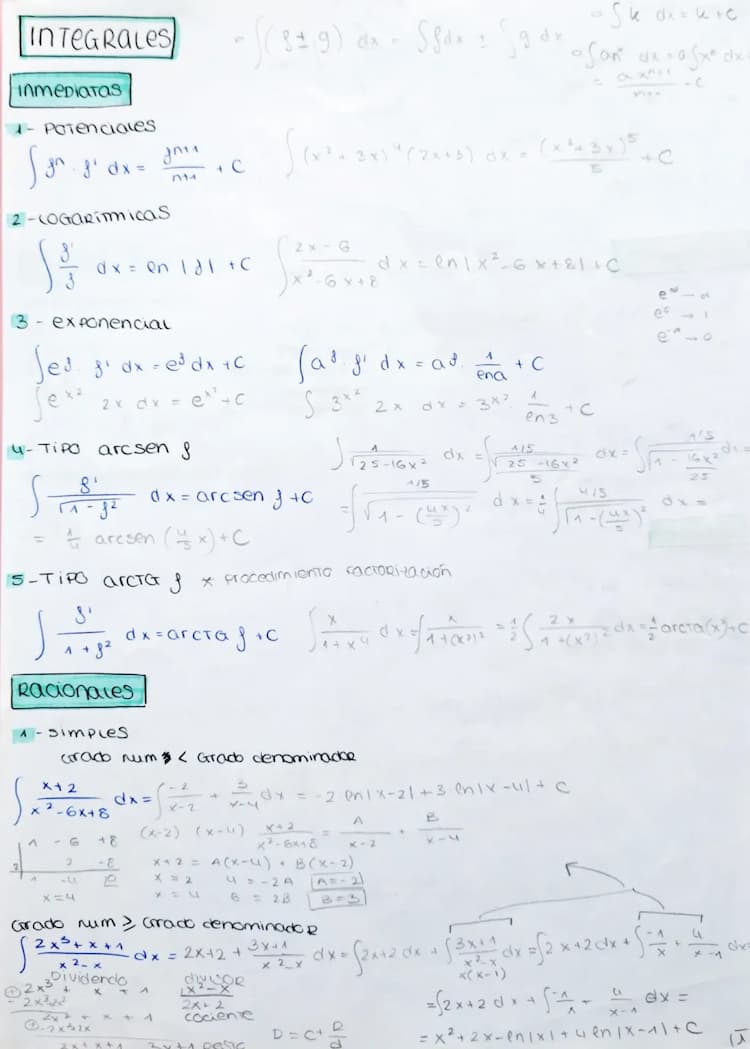 INTEGRALES
∫(f ± g) dx = ∫f dx ± ∫g dx
∫k dx = k + C
∫axⁿ dx = a∫xⁿ dx
= axⁿ⁺¹/n+1 + C
INMEDIATAS
1 - POTENCIALES
∫fⁿ · f' dx = fⁿ⁺¹/n+1 + C
∫(x² + 3x)⁴ (2x+3) dx = (x²+3x)⁵/5 + C
2 - LOGARÍTMICAS
∫f'/f dx = ln |f| + C
∫2x-6/x²-6x+8 dx = ln|x²-6x+8| + C
3 - EXPONENCIAL
∫eᶠ · f' dx = eᶠ dx + C
∫aᶠ · f' dx = aᶠ · 1/lna + C
e^∞ → ∞
e⁰ → 1
e^-∞ → 0
∫e^x² 2x dx = e^x² + C
∫3^x² 2x dx = 3^x² · 1/ln3 + C
4 - TIPO arcsen f
∫f'/√1-f² dx = arcsen f + C
∫1/√25-16x² dx = ∫1/5/√25-16x² dx = ∫1/5/√1-16x²/25
= ∫1/5/√1-(4x/5)² dx = 1/4∫4/5/√1-(4x/5)² dx =
= 1/4 arcsen (4/5 x) + C
5 - TIPO arctg f * procedimiento factorización
∫f'/1+f² dx = arctg f + C
∫x/1+x⁴ dx = ∫x/1+(x²)² = 1/2∫2x/1+(x²)² dx = 1/2 arctg(x²) + C
RACIONALES
1 - SIMPLES
Grado num < Grado denominador
∫x+2/x²-6x+8 dx = ∫-2/x-2 + 3/x-4 dx = -2 ln|x-2| + 3 ln|x-4| + C
1 -6 +8
2 2 -8
1 -4 0
x=4
(x-2) (x-4) x+2/x²-6x+8 = A/x-2 + B/x-4
x+2 = A(x-4) + B(x-2)
x = 2 4 = -2A A=-2
x = 4 6 = 2B B=3
Grado num ≥ Grado denominador
∫2x³+x+1/x²-x dx = 2x+2 + 3x+1/x²-x dx = ∫2x+2 dx + ∫3x+1/x²-x dx = ∫2x+2 dx + ∫-1/x + 4/x-1 dx
x(x-1)
Dividendo divisor
2x³ + x + 1 x²-x
2x+2
cociente
= ∫2x+2 dx + ∫-1/x + 4/x-1 dx =
D = C + R/d
= x² + 2x - ln|x| + 4 ln|x-1| + C